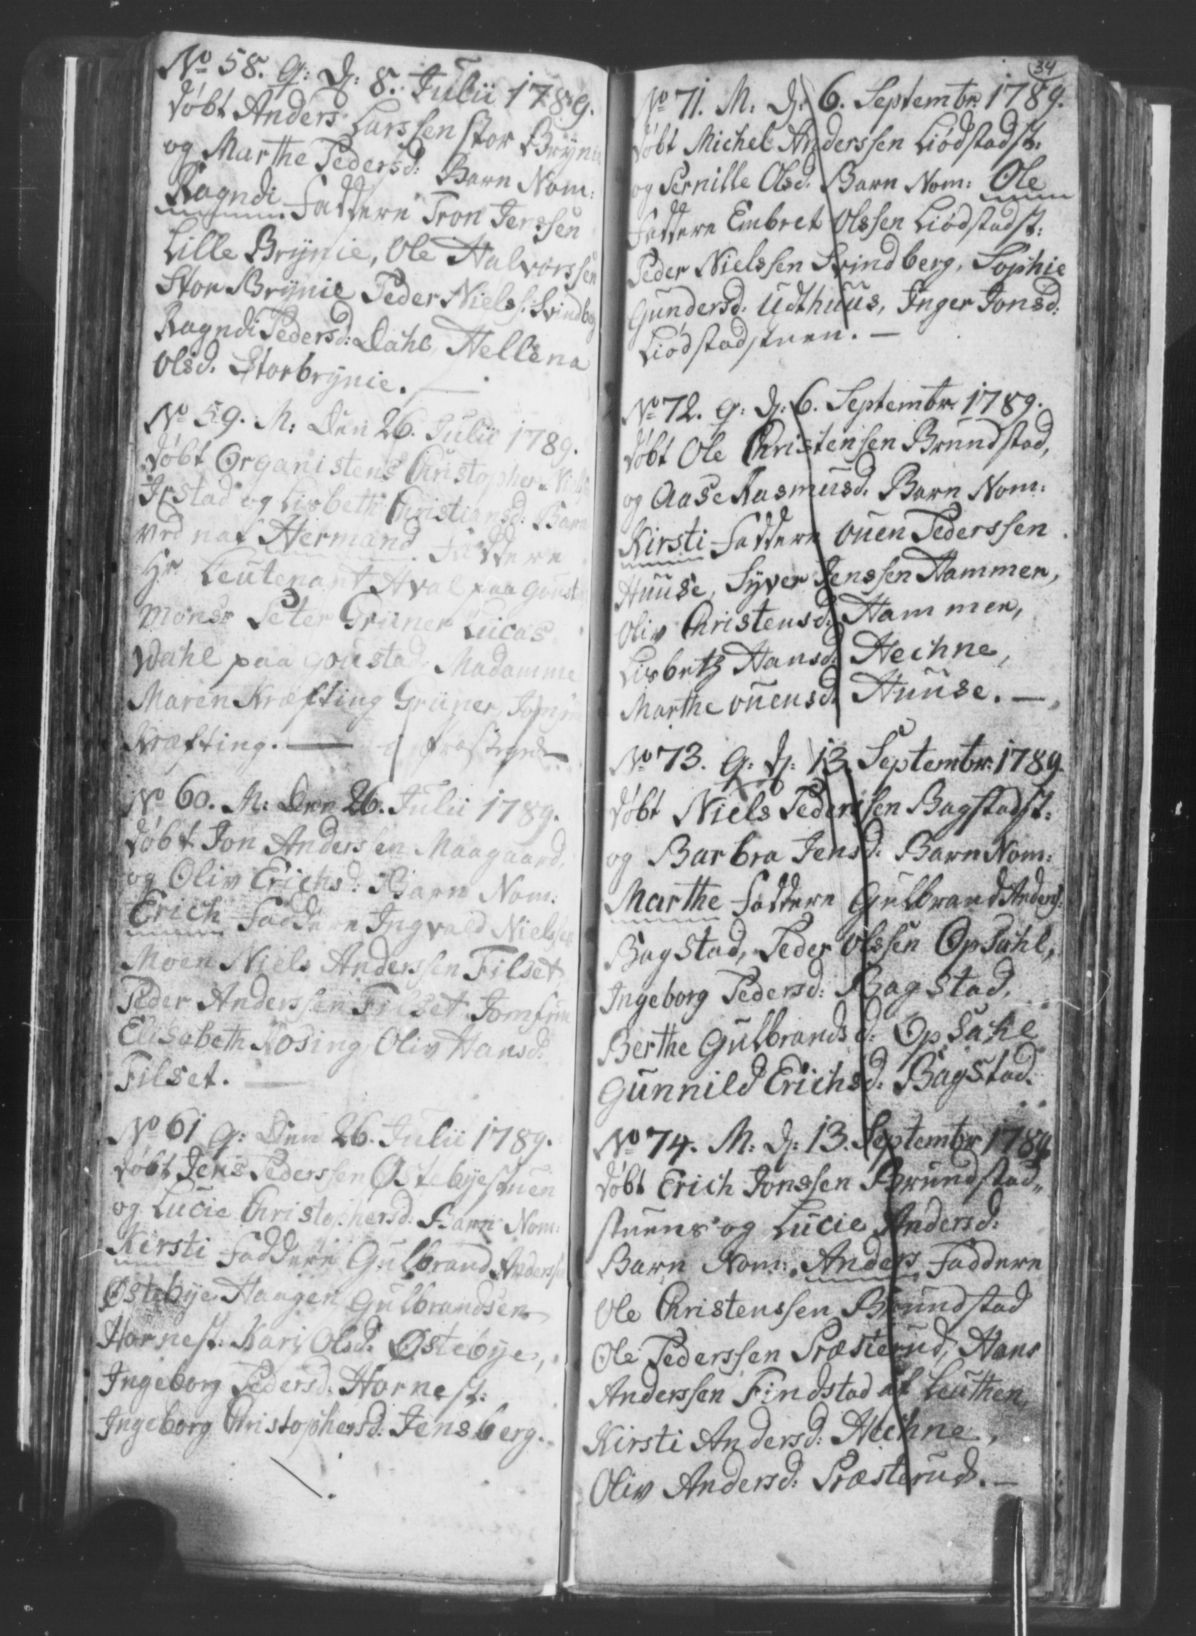 No 58. G: D: 8. Julii 1789.
døbt Anders Larssen Stor Brÿnie
og Marthe Pedersd: Barn Nom:
Ragndi Faddere Tron Jenssen
Lille Brÿnie, Ole Halvorssen
Stor Brÿnie Peder Niels: Svindberg
Ragndi Pedersd: Dahl, Hellena
Olsd. Storbrÿnie. —
No 59. M: Den 26. Julii 1789.
døbt Organistens Christopher Niels:
og Lisbeth Christiansd: Barn
ved nat Hermand Faddere
Hr Leutenant Hval paa
Monsr Peter Grüner Lucas
Dahl paa Madamme
Maren Kræfting Grüner, Jomfru
Kræfting. —
No 60. M: Den 26. Julii 1789.
døbt Jon Anderssen Maagaard,
og Oliv Erichsd: Barn Nom:
Erich Faddere Ingvald Nielssen
Moen Niels Anderssen Filset,
Peder Anderssen Filset, Jomfru
Elisabeth Rosing, Oliv Hansd:
Filset. —
No 61 G: Den 26. Julii 1789.
døbt Jens Pederssen Østebÿestuen
og Lucie Christophersd: Barn Nom:
Kirsti Faddere Gulbrand Anderssen
Østebÿe Haagen Gulbrandsen
Hornest: Kari Olsd: Østebÿe,
Ingeborg Pedersd: Hornest:
Ingeborg Christophersd: Jensberg.
34
No 71. M: D: 6. Septembr: 1789.
døbt Michel Anderssen Liødstadst:
og Pernille Olsd. Barn Nom: Ole
Faddere Embret Olssen Liødstadst:
Peder Nielssen Svindberg, Sophie
Gundersd: Udthuus, Inger Jonsd:
Liødstadstuen. —
No 72. G: D: 6. Septembr: 1789.
døbt Ole Christensen Brundstad,
og Aase Rasmusd. Barn Nom:
Kirsti Faddere Ouen Pederssen
Huuse, Sÿver Jenssen Hammer,
Oliv Christensd: Hammer,
Lisbeth Hansd: Hechne,
Marthe Ouensd: Huuse. —
No 73. G: D: 13. Septembr: 1789.
døbt Niels Pederssen Bagstadst:
og Barbra Jensd: Barn Nom:
Marthe Faddere Gulbrand Anders:
Bagstad, Peder Olssen Opsahl,
Ingeborg Pedersd: Bagstad,
Berthe Gulbrandsd: Opsahl
Gunnild Erichsd: Bagstad.
No 74. M: D: 13. Septembr 1789
døbt Erich Jonssen Brundstad„
stuens og Lucie Andersd:
Barn Nom: Anders Faddere
Ole Christenssen Brundstad
Ole Pederssen Præsterud, Hans
Anderssen Findstad af Leuthen,
Kirsti Andersd: Hechne,
Oliv Andersd: Præsterud. —